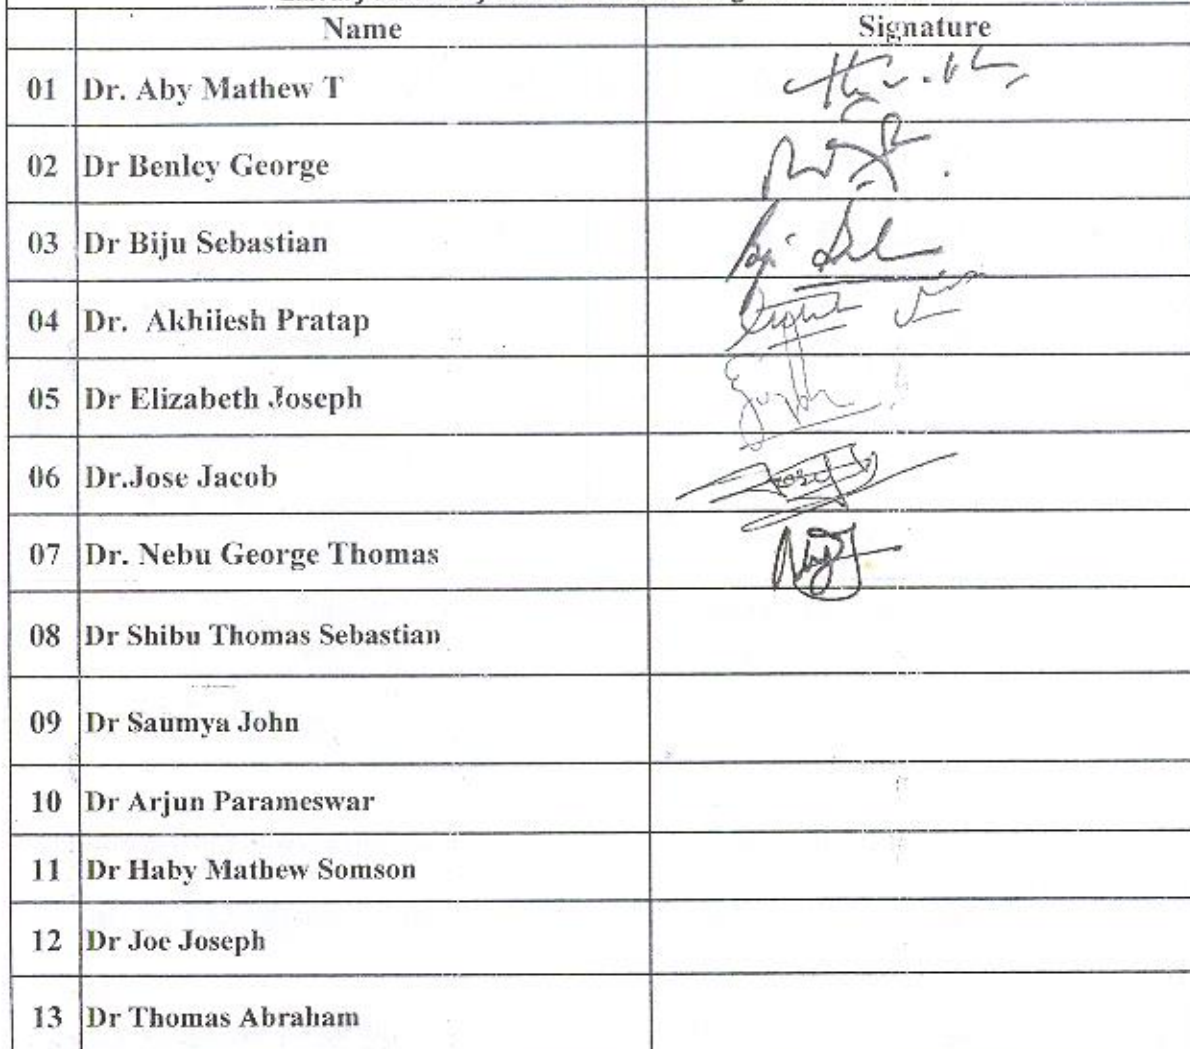 Name Signature
01 Dr. Aby Mathew T
02 Dr Benley George
03 Dr Biju Sebastian
04 Dr. Akhilesh Pratap
05 Dr Elizabeth Joseph
06 Dr.Jose Jacob
07 Dr. Nebu George Thomas
08 Dr Shibu Thomas Sebastian
09 Dr Saumya John
10 Dr Arjun Parameswar
11 Dr Haby Mathew Somson
12 Dr Joe Joseph
13 Dr Thomas Abraham